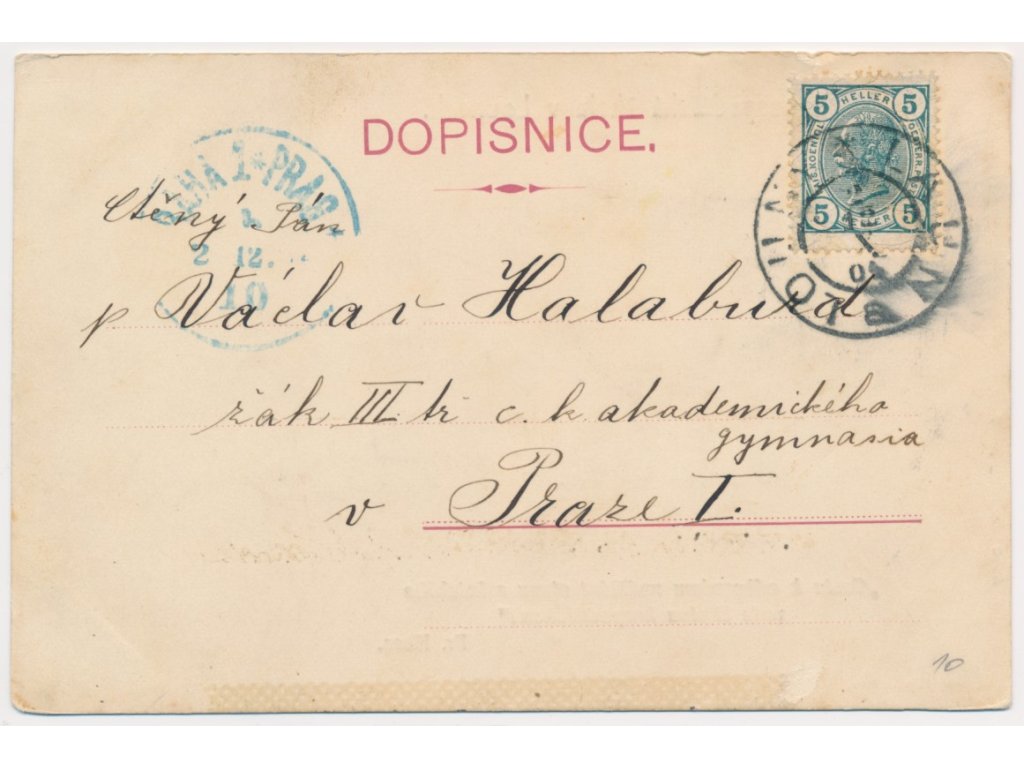 DOPISNICE.
5 HELLER 5
5 HELLER 5
PRAHA 1 * PRAG
2 12.
10
Ctěný Pán
p Václav Halaburd
žák III. tř c. k. akademického
gymnasia
v Praze I.
10